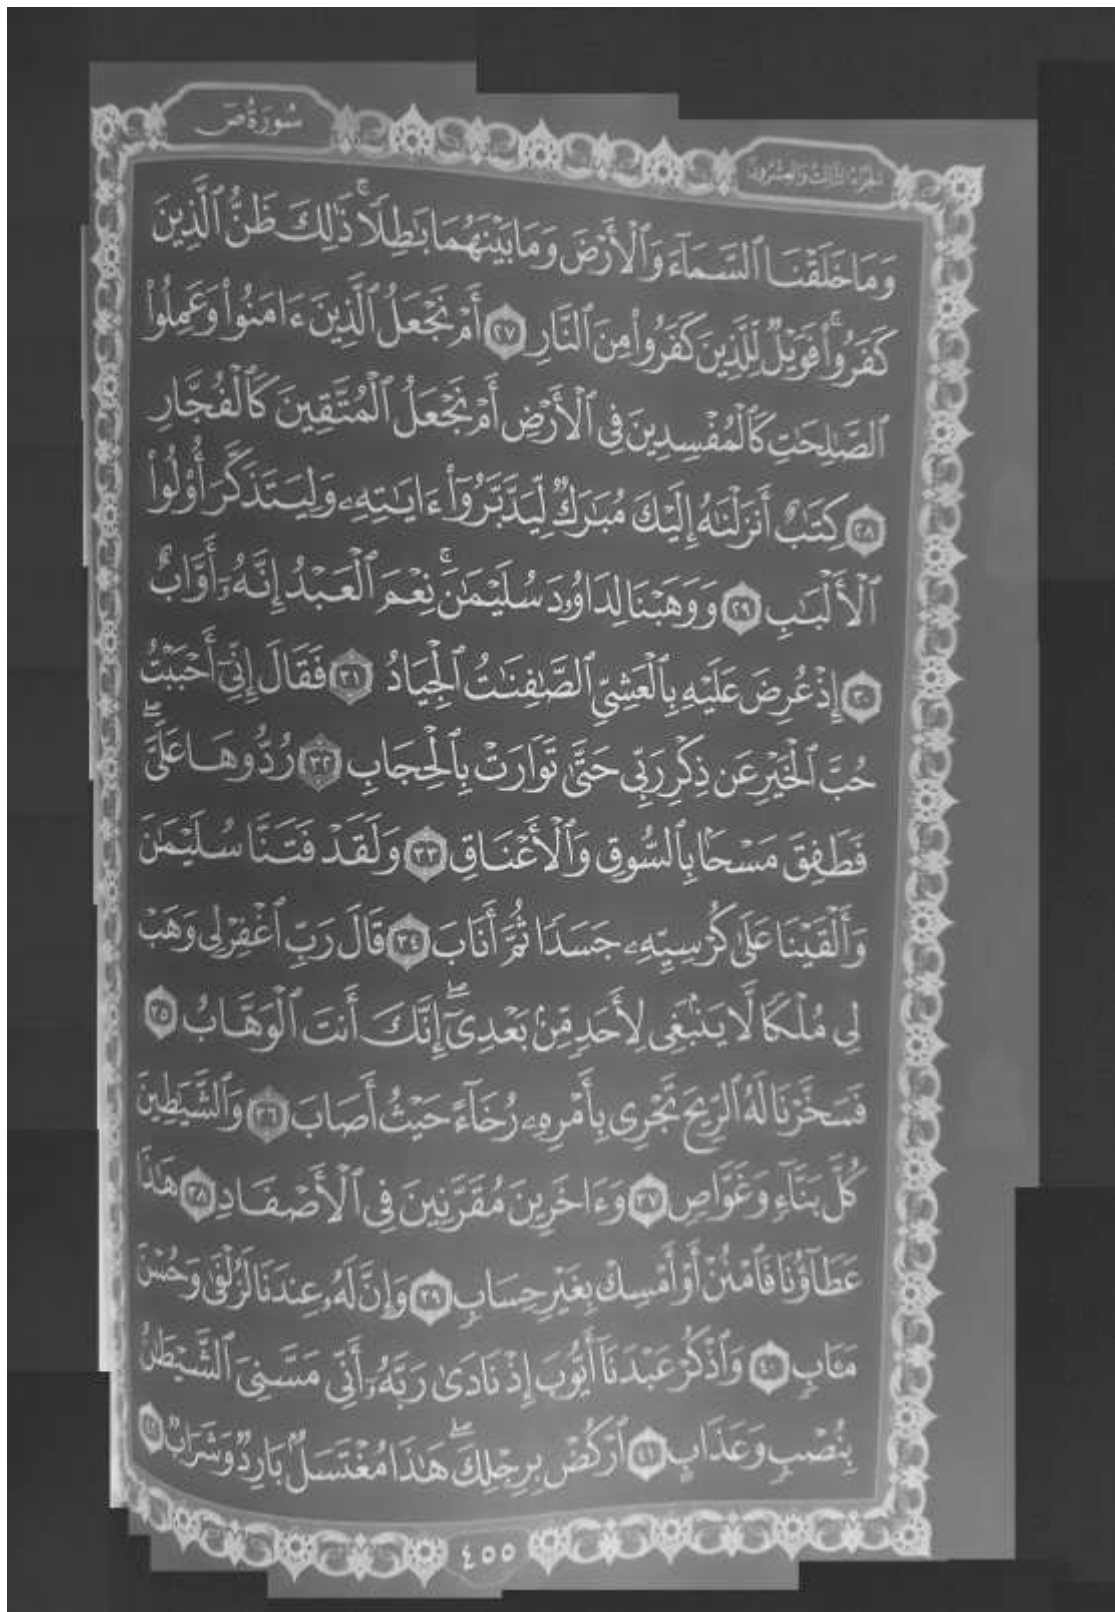 سُورَةُ صٓ
الجُزْءُ الثَّالِثُ وَالعِشْرُونَ
وَمَا خَلَقْنَا ٱلسَّمَآءَ وَٱلْأَرْضَ وَمَا بَيْنَهُمَا بَٰطِلًاۚ ذَٰلِكَ ظَنُّ ٱلَّذِينَ
كَفَرُوا۟ۚ فَوَيْلٌ لِّلَّذِينَ كَفَرُوا۟ مِنَ ٱلنَّارِ ٢٧ أَمْ نَجْعَلُ ٱلَّذِينَ ءَامَنُوا۟ وَعَمِلُوا۟
ٱلصَّٰلِحَٰتِ كَٱلْمُفْسِدِينَ فِى ٱلْأَرْضِ أَمْ نَجْعَلُ ٱلْمُتَّقِينَ كَٱلْفُجَّارِ
٢٨ كِتَٰبٌ أَنزَلْنَٰهُ إِلَيْكَ مُبَٰرَكٌ لِّيَدَّبَّرُوٓا۟ ءَايَٰتِهِۦ وَلِيَتَذَكَّرَ أُو۟لُوا۟
ٱلْأَلْبَٰبِ ٢٩ وَوَهَبْنَا لِدَاوُۥدَ سُلَيْمَٰنَۚ نِعْمَ ٱلْعَبْدُ إِنَّهُۥٓ أَوَّابٌ
٣٠ إِذْ عُرِضَ عَلَيْهِ بِٱلْعَشِىِّ ٱلصَّٰفِنَٰتُ ٱلْجِيَادُ ٣١ فَقَالَ إِنِّىٓ أَحْبَبْتُ
حُبَّ ٱلْخَيْرِ عَن ذِكْرِ رَبِّى حَتَّىٰ تَوَارَتْ بِٱلْحِجَابِ ٣٢ رُدُّوهَا عَلَىَّۖ
فَطَفِقَ مَسْحًۢا بِٱلسُّوقِ وَٱلْأَعْنَاقِ ٣٣ وَلَقَدْ فَتَنَّا سُلَيْمَٰنَ
وَأَلْقَيْنَا عَلَىٰ كُرْسِيِّهِۦ جَسَدًا ثُمَّ أَنَابَ ٣٤ قَالَ رَبِّ ٱغْفِرْ لِى وَهَبْ
لِى مُلْكًا لَّا يَنۢبَغِى لِأَحَدٍ مِّنۢ بَعْدِىٓۖ إِنَّكَ أَنتَ ٱلْوَهَّابُ ٣٥
فَسَخَّرْنَا لَهُ ٱلرِّيحَ تَجْرِى بِأَمْرِهِۦ رُخَآءً حَيْثُ أَصَابَ ٣٦ وَٱلشَّيَٰطِينَ
كُلَّ بَنَّآءٍ وَغَوَّاصٍ ٣٧ وَءَاخَرِينَ مُقَرَّنِينَ فِى ٱلْأَصْفَادِ ٣٨ هَٰذَا
عَطَآؤُنَا فَٱمْنُنْ أَوْ أَمْسِكْ بِغَيْرِ حِسَابٍ ٣٩ وَإِنَّ لَهُۥ عِندَنَا لَزُلْفَىٰ وَحُسْنَ
مَـَٔابٍ ٤٠ وَٱذْكُرْ عَبْدَنَآ أَيُّوبَ إِذْ نَادَىٰ رَبَّهُۥٓ أَنِّى مَسَّنِىَ ٱلشَّيْطَٰنُ
بِنُصْبٍ وَعَذَابٍ ٤١ ٱرْكُضْ بِرِجْلِكَۖ هَٰذَا مُغْتَسَلٌۢ بَارِدٌ وَشَرَابٌ ٤٢
٤٥٥